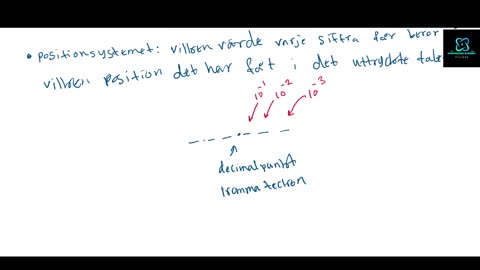 • Positionsystemet: vilken värde varje siffra får beror
vilken position det har fåt i det uttryckte tale
10⁻¹ 10⁻² 10⁻³
decimalpunkt
kommatecken